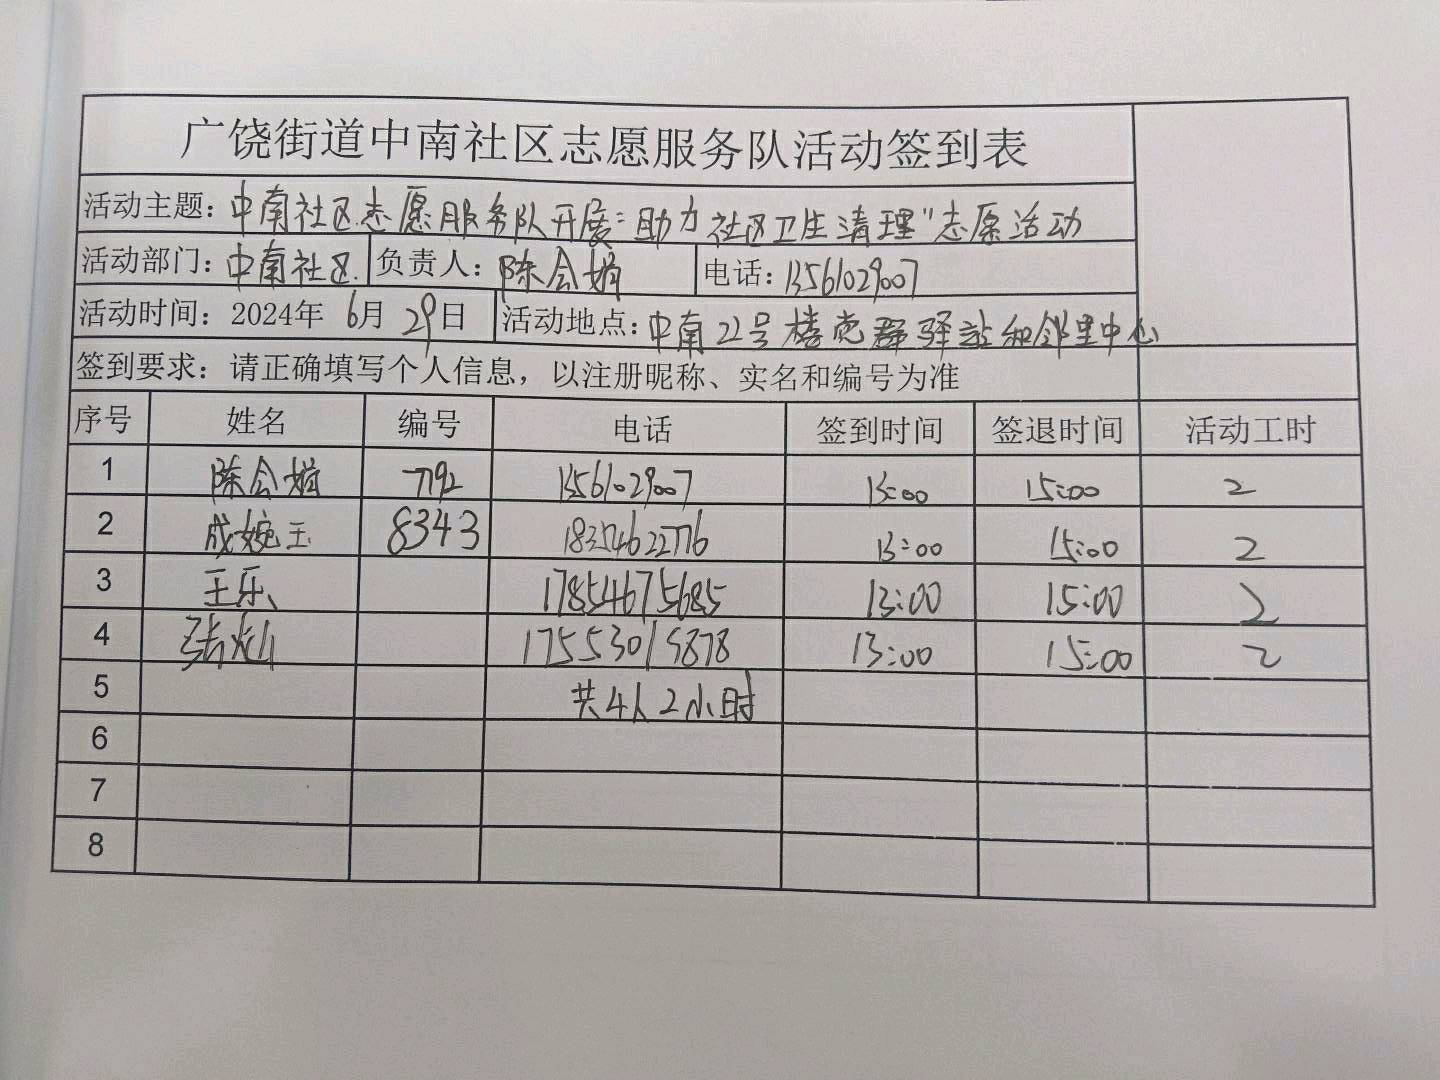 广饶街道中南社区志愿服务队活动签到表
活动主题：中南社区志愿服务队开展"助力社区卫生清理"志愿活动
活动部门：中南社区 负责人：陈会娟 电话：13561029007
活动时间：2024年 6月 29日 活动地点：中南22号楼党群驿站和邻里中心
签到要求：请正确填写个人信息，以注册昵称、实名和编号为准
序号 姓名 编号 电话 签到时间 签退时间 活动工时
1 陈会娟 7192 13561029007 13:00 15:00 2
2 成婉玉 8343 18354622776 13:00 15:00 2
3 王乐 17854675685 13:00 15:00 2
4 张灿 17553019878 13:00 15:00 2
5 共4人2小时
6
7
8